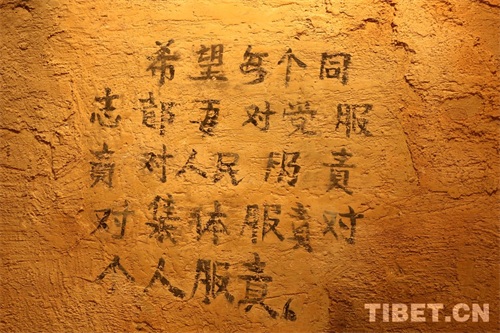 希望每个同
志都要对党服
责对人民服责
对集体服责对
个人服责。
TIBET.CN